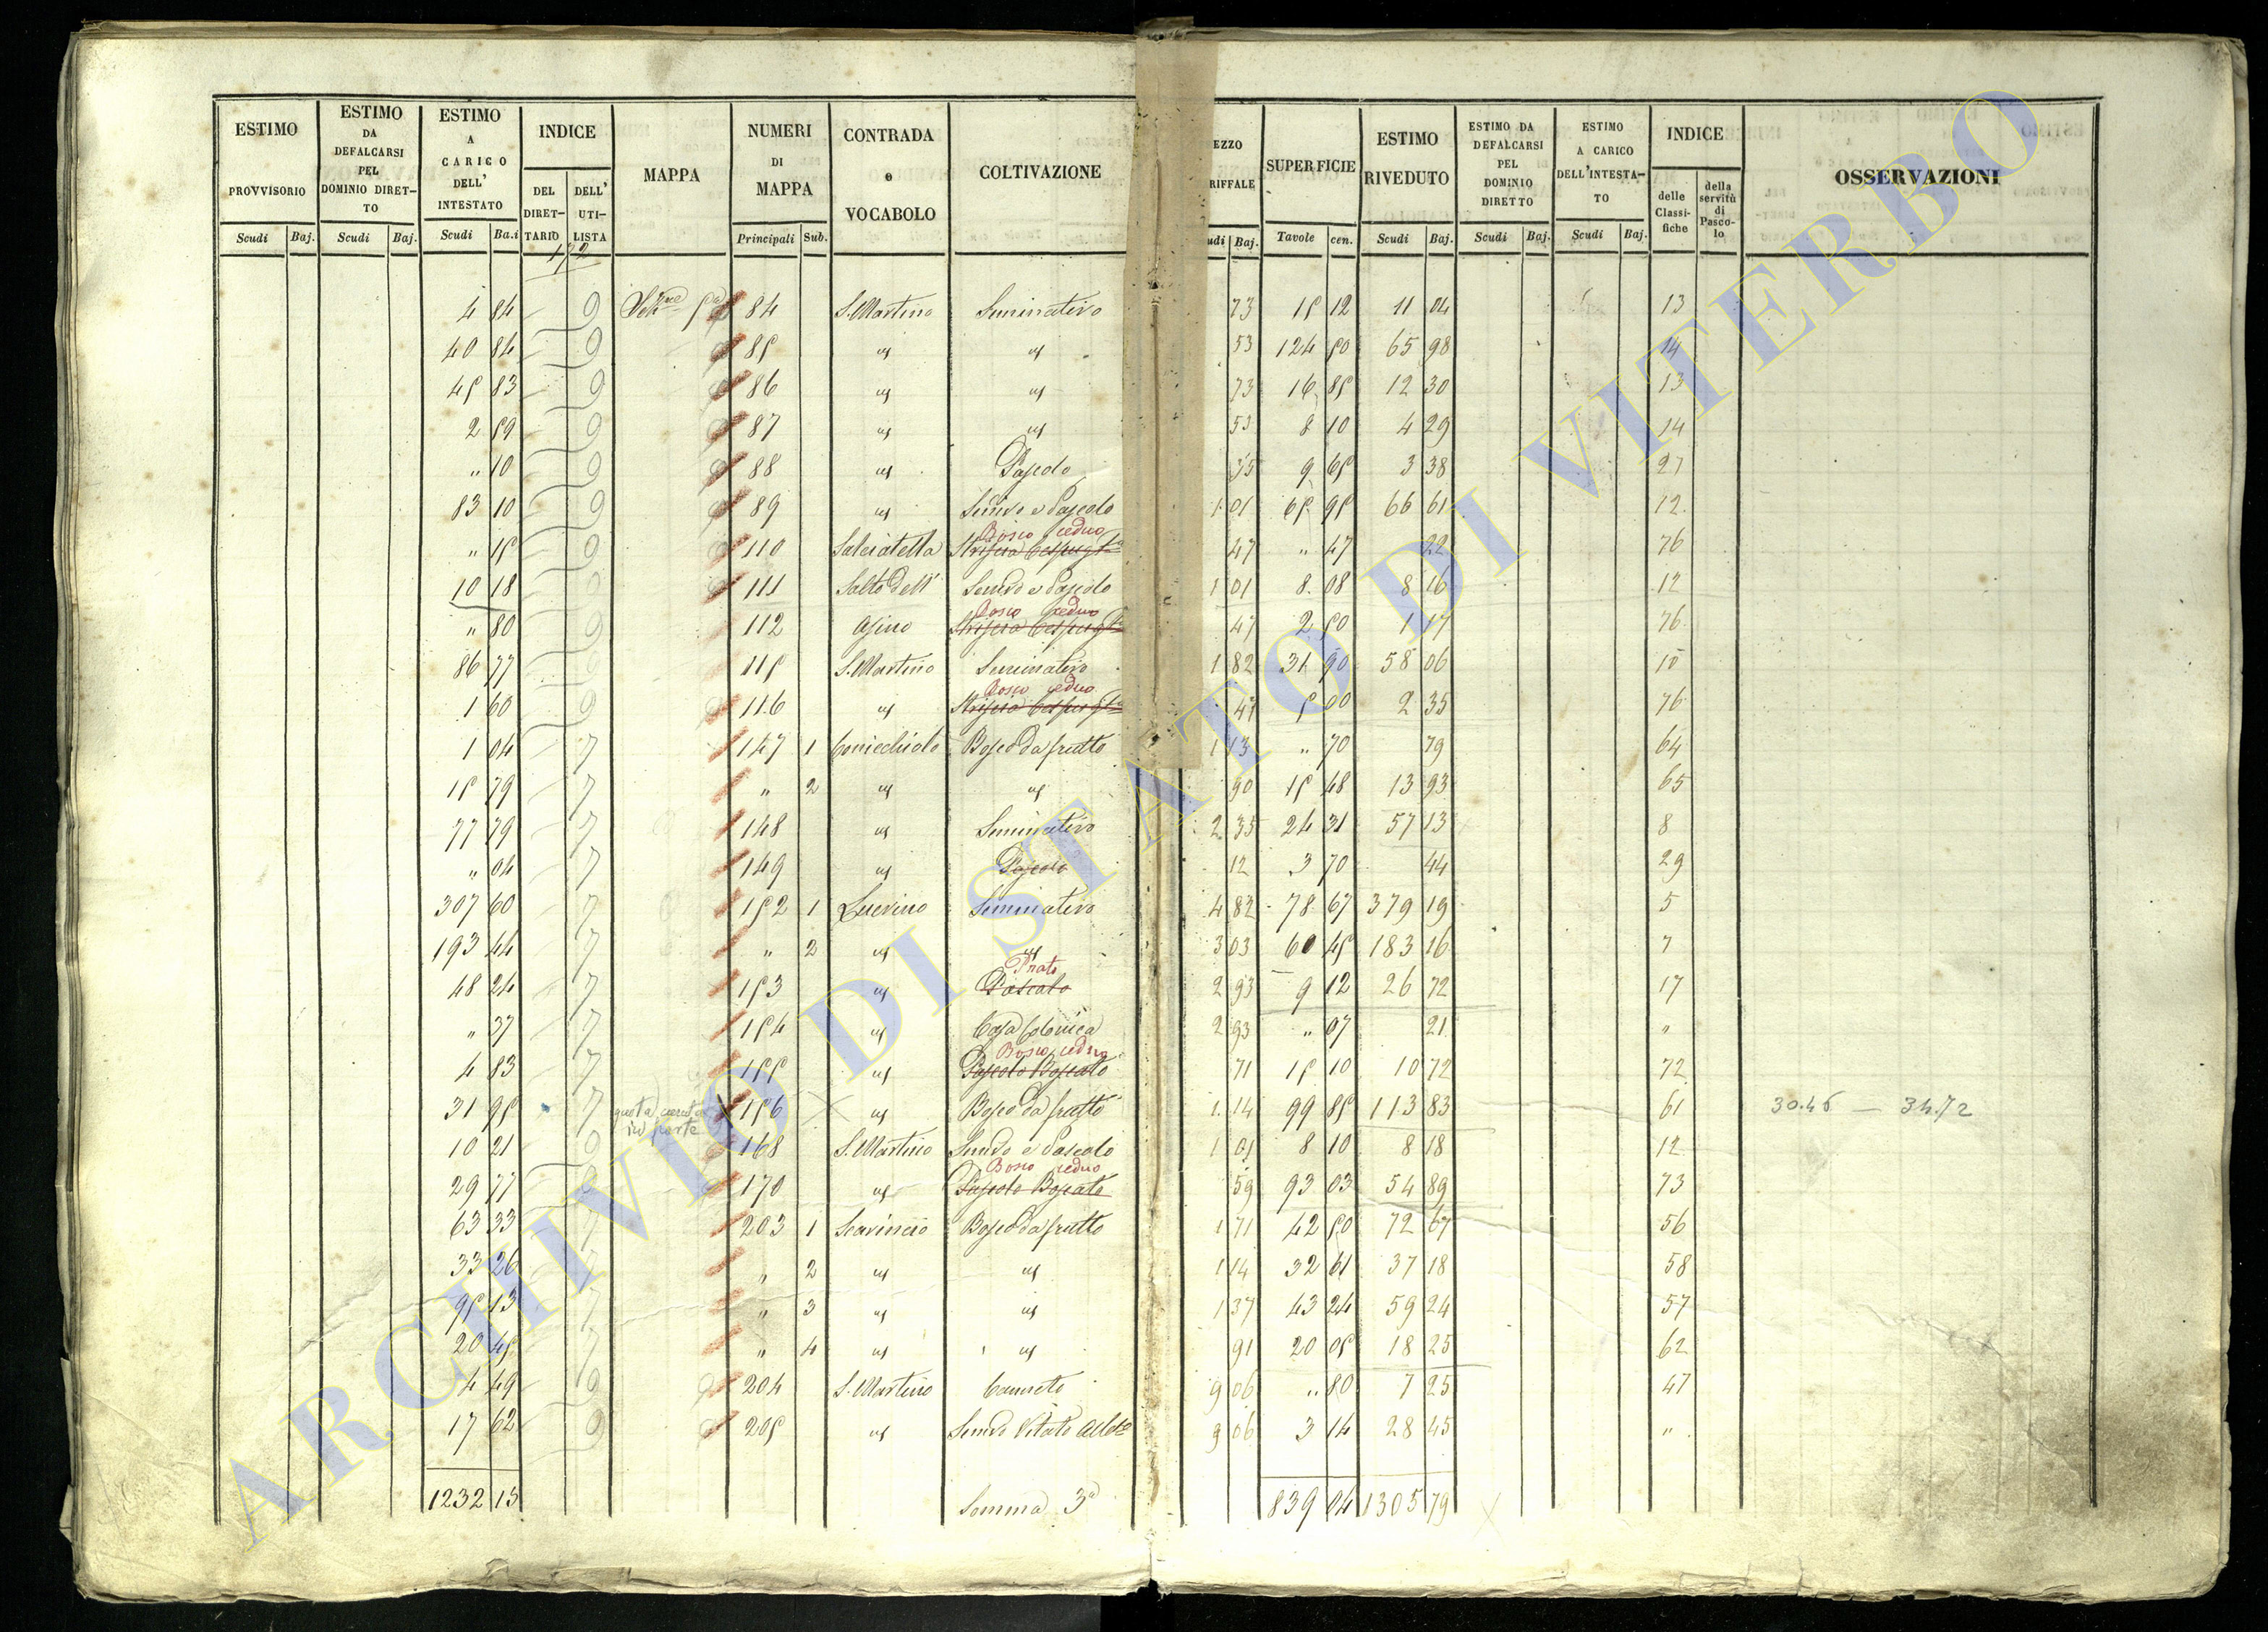 ESTIMO PROVVISORIO | ESTIMO DA DEFALCARSI PEL DOMINIO DIRETTO | ESTIMO A CARICO DELL' INTESTATO | INDICE DEL DIRETTARIO | DELL' UTILISTA | MAPPA | NUMERI DI MAPPA | CONTRADA e VOCABOLO | COLTIVAZIONE | EZZO RIFFALE | SUPERFICIE | ESTIMO RIVEDUTO | ESTIMO DA DEFALCARSI PEL DOMINIO DIRETTO | ESTIMO A CARICO DELL'INTESTATO | INDICE delle Classifiche | della servitù di Pascolo | OSSERVAZIONI
Scudi Baj. | Scudi Baj. | Scudi Ba.i | Principali Sub. | udi Baj. | Tavole cen. | Scudi Baj. | Scudi Baj. | Scudi Baj.
172
4 84 9 84 S. Martino Seminativo 73 15 12 11 04 13
40 84 9 85 " " 53 124 50 65 98 14
45 83 9 86 " " 73 16 85 12 30 13
2 59 9 87 " " 53 8 10 4 29 14
" 10 9 88 " Pascolo 35 9 65 3 38 27
83 10 9 89 " Semvo e Pascolo 1 01 65 95 66 61 12
Bosco ceduo
" 15 9 110 Salciatella 47 " 47 22 76
10 18 9 111 Salto dell' Semvo e Pascolo 1 01 8 08 8 16 12
Bosco ceduo
" 80 9 112 Asino 47 2 50 1 17 76
86 77 9 115 S. Martino Seminativo 1 82 31 90 58 06 10
Bosco ceduo
1 60 9 116 " 47 5 00 2 35 76
1 04 7 147 1 Bosco da frutto 1 13 " 70 79 64
15 79 7 " 2 " " 90 15 48 13 93 65
77 79 7 148 " Seminativo 2 35 24 31 57 13 8
" 04 7 149 " Pascolo 12 3 70 44 29
307 60 7 152 1 Lucrino Seminativo 4 82 78 67 379 19 5
193 44 7 " 2 " " 3 03 60 45 183 16 7
Prato
48 24 7 153 " Pascolo 2 93 9 12 26 72 17
" 37 7 154 " Casa Colonica 2 93 " 07 21 "
Bosco ceduo
4 83 7 155 " Pascolo Boscato 71 15 10 10 72 72
31 95 7 quota in parte 156 " Bosco da frutto 1 14 99 85 113 83 61 30.46 — 34.72
10 21 9 168 S. Martino Semvo e Pascolo 1 01 8 10 8 18 12
Bosco ceduo
29 77 9 170 " Pascolo Boscato 59 93 03 54 89 73
63 33 7 203 1 Scarincio Bosco da frutto 1 71 42 50 72 67 56
33 26 7 " 2 " " 1 14 32 61 37 18 58
95 13 7 " 3 " " 1 37 43 24 59 24 57
20 45 7 " 4 " " 91 20 05 18 25 62
4 49 9 204 S. Martino Canneto 9 06 " 80 7 25 47
17 62 9 205 " Semvo Vitato 9 06 3 14 28 45 "
1232 13 Somma 3a 839 04 1305 79
ARCHIVIO DI STATO DI VITERBO